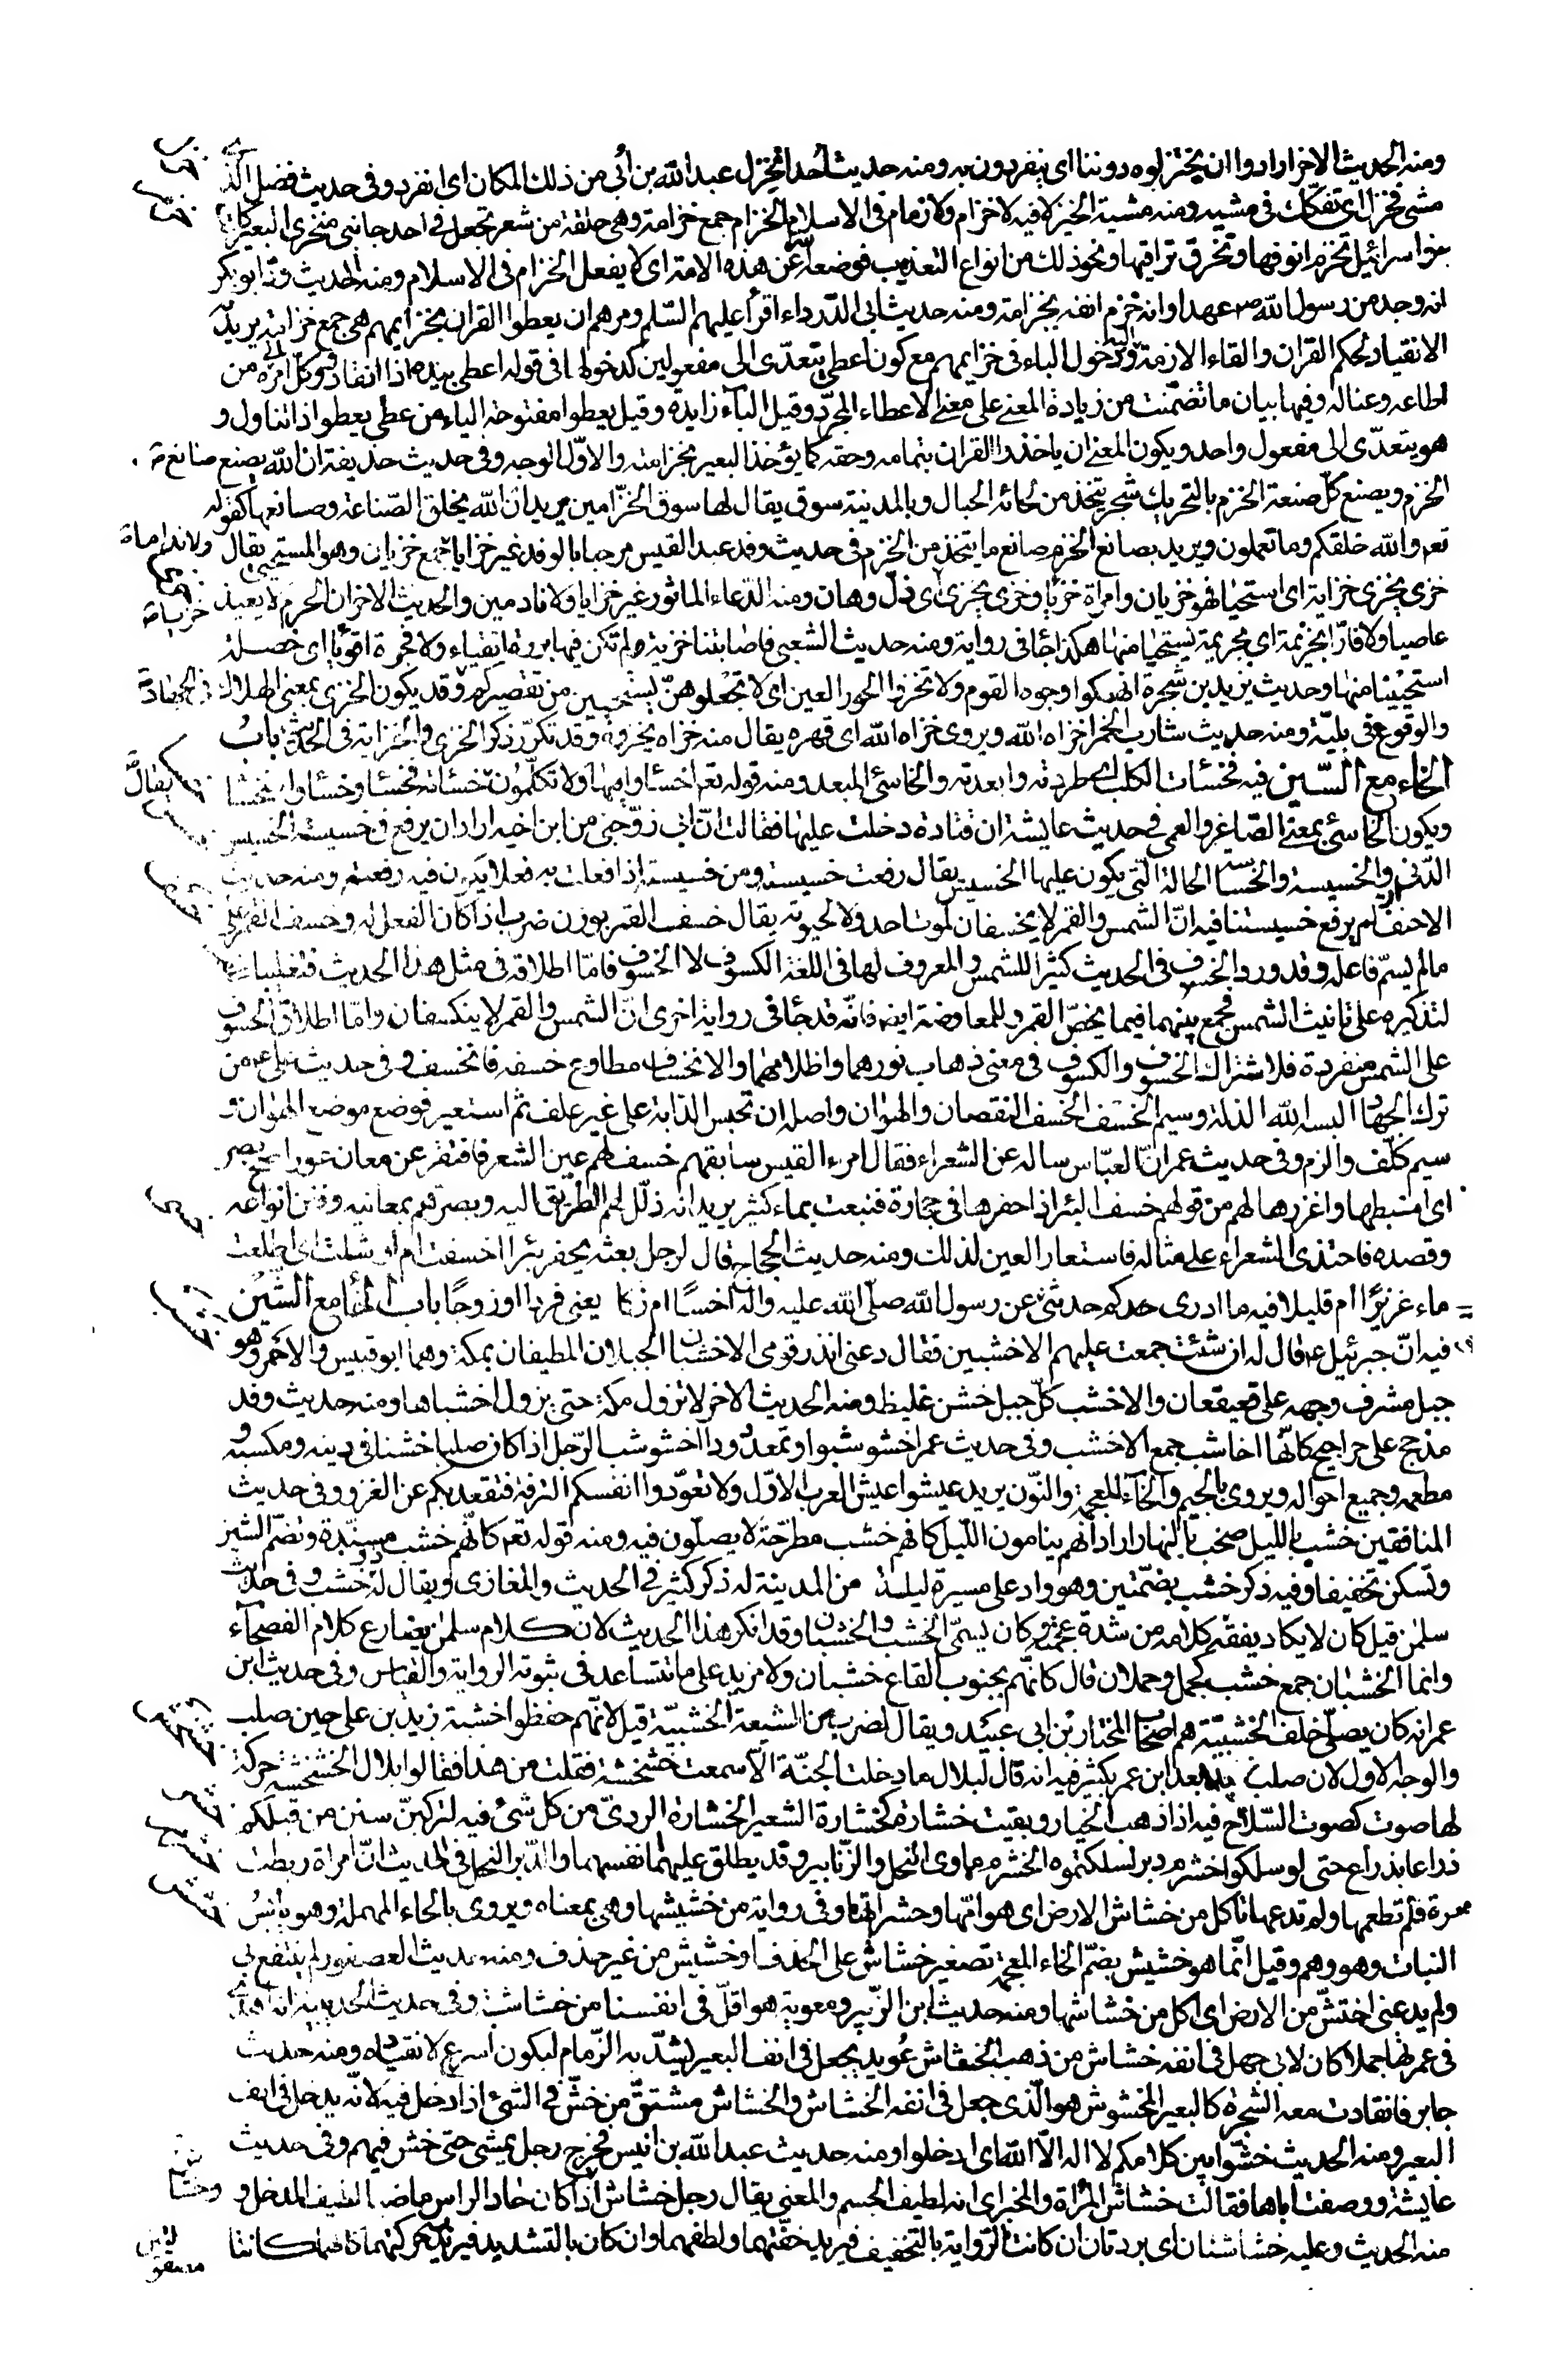 ومنه الحديث الاخر ارادوا ان يختزلوه دوننا اى ينفردون به ومنه حديث أحد انخزل عبد الله بن أبي من ذلك المكان اى انفرد وفى حديث فضل الذى
مشى فخزل اى تفكك فى مشيه ومنه مشية الخيزلى فيه لا خزام ولا زمام فى الاسلام الخزام جمع خزامة وهى حلقة من شعر تجعل فى احد جانبى منخرى البعير كانت
بنو اسرائيل تخزم انوفها وتخرق تراقيها ونحو ذلك من انواع التعذيب فوضعه الله عن هذه الامة اى لا يفعل الخزام فى الاسلام ومنه الحديث ودّ ابو بكر
انه وجد من رسول الله ص عهدا وانه خزم انفه بخزامة ومنه حديث ابى الدّرداء اقرأ عليهم السّلم ومرهم ان يعطوا القران بخزائمهم هى جمع خزامة يريد به
الانقياد لحكم القران والقاء الازمة اليه ودخول الباء فى خزائمهم مع كون اعطى يتعدّى الى مفعولين كدخولها فى قوله اعطى بيده اذا انقاد ووكل امره الى من
اطاعه وعنا له وفيها بيان ما تضمّنت من زيادة المعنى على معنى الاعطاء المجرّد وقيل الباء زايدة وقيل يعطوا مفتوحة الياء من عطى يعطوا اذا تناول و
هو يتعدّى الى مفعول واحد ويكون المعنى ان ياخذوا القران بتمامه وحقه كما يؤخذ البعير بخزامته والاوّل الوجه وفى حديث حذيفة ان الله يصنع صانع
الخزم ويصنع كلّ صنعة الخزم بالتحريك شجر يتخذ من لحائه الحبال وبالمدينة سوق يقال لها سوق الخزّامين يريد ان الله يخلق الصّناعة وصانعها كقوله
تعم والله خلقكم وما تعملون ويريد بصانع الخزم صانع ما يتخذ من الخزم فى حديث وفد عبد القيس مرحبا بالوفد غير خزايا جمع خزيان وهو المستحيى يقال ولا ندامى
خزى يخزى خزاية اى استحيا فهو خزيان وامراة خزيا وخزى يخزى اى ذلّ وهان ومنه الدّعاء الماثور غير خزايا ولا نادمين والحديث الاخر ان الحرم لا يعيذ
عاصيا ولا فارّا بخزية اى بجريمة يستحيا منها هكذا جا فى رواية ومنه حديث الشعبى فاصابتنا خزية لم نكن فيها بررة اتقياء ولا فجرة اقويا اى خصلة
استحيينا منها وحديث يزيد بن شجرة انهكوا وجوه القوم ولا تخزوا الحور العين اى لا تجعلوهنّ يستحيين من تقصيركم وقد يكون الخزى بمعنى الهلاك
والوقوع فى بليّة ومنه حديث شارب الخمر اخزاه الله ويروى خزاه الله اى قهره يقال منه خزاه يخزوه وقد تكرّر ذكر الخزى والخزاية فى الحديث باب
الخاء مع السّين فيه فخسئات الكلب اى طردته وابعدته والخاسئ المبعد ومنه قوله تعم اخسأوا فيها ولا تكلّمون خسئاته فخسئا وخسئا وانخسئا
ويكون الخاسئ بمعنى الصّاغر والعمى فى حديث عايشة ان فتاة دخلت عليها فقالت انّ ابى زوّجنى من ابن اخيه اراد ان يرفع بى خسيسته الخسيس
الدّنى والخسيسة والخساسة الحالة التى يكون عليها الخسيس يقال رفعت خسيسته ومن خسيسته اذا فعلت به فعلا يكون فيه رفعته ومنه حديث
الاحنف لم يرفع خسيستنا فيه انّ الشمس والقمر لا يخسفان لموت احد ولا لحيوته يقال خسف القمر بوزن ضرب اذا كان الفعل له وخسف القمر على
ما لم يسمّ فاعله وقد ورد الخسوف فى الحديث كثيرا للشمس والمعروف لها فى اللغة الكسوف لا الخسوف فامّا اطلاقه فى مثل هذا الحديث فتغليبا
لتذكيره على تانيث الشمس فجمع بينهما فيما يخصّ القمر وللمعاوضة ايضا فانّه قد جا فى رواية اخرى انّ الشمس والقمر لا ينكسفان وامّا اطلاق الخسوف
على الشمس منفردة فلاشتراك الخسوف والكسوف فى معنى ذهاب نورهما واظلامهما والانخساف مطاوع خسفه فانخسف وفى حديث على عم من
ترك الجهاد البسه الله الذلة وسيم الخسف الخسف النقصان والهوان واصله ان تحبس الدّابة على غير علف ثم استعير فوضع موضع الهوان و
سيم كلّف والزم وفى حديث عمر انّ العبّاس ساله عن الشعراء فقال امرء القيس سابقهم خسف لهم عين الشعر فافتقر عن معان عور اصحّ بصر
اى انبطها واغزرها لهم من قولهم خسف البئر اذا حفرها فى حجارة فنبعت بماء كثير يريد انه ذلّل لهم الطّريق اليه وبصّرهم بمعانيه وفنن انواعه
وقصده فاحتذى الشعراء على مثاله فاستعار العين لذلك ومنه حديث الحجاج قال لرجل بعثه يحفر بئرا اخسفت ام اوشلت اى اطلعت
ماء غزيرًا ام قليلا فيه ما ادرى كم حدثنى عن رسول الله صلّى الله عليه واله اخسًا ام زكا يعنى فردا او زوجًا باب الخا مع الشين
فيه انّ جبرئيل عم قال له ان شئت جمعت عليهم الاخشبين فقال دعنى انذر قومى الاخشبان الجبلان المطيفان بمكة وهما ابو قبيس والاحمر وهو
جبل مشرف وجهه على قعيقعان والاخشب كلّ جبل خشن غليظ ومنه الحديث الاخر لا تزول مكة حتى يزول اخشباها ومنه حديث وفد
مذحج على حراجيج كانّها اخاشب جمع الاخشب وفى حديث عمر اخشوشبوا وتمعددوا اخشوشب الرّجل اذا كان صلبا خشنا فى دينه وملبسه و
مطعمه وجميع احواله ويروى بالجيم والخاء المعجمة والنّون يريد عيشوا عيش العرب الاوّل ولا تعوّدوا انفسكم الترفه فتقعد بكم عن الغزو وفى حديث
المنافقين خشب بالليل صخب بالنهار اراد انّهم ينامون اللّيل كانّهم خشب مطرّحة لا يصلّون فيه ومنه قوله تعم كانّهم خشب مسنّدة وتضمّ الشين
وتسكن تخفيفا وفيه ذكر خشب بضمّتين وهو واد على مسيرة ليلة من المدينة له ذكر كثير فى الحديث والمغازى ويقال له ذو خشب وفى حديث
سلمن قيل كان لا يكاد يفقه كلامه من شدة عجمته وكان يسمّى الخشب الخشبان وقد انكر هذا الحديث لان كلام سلمن يضارع كلام الفصحآء
وانما الخشبان جمع خشب كحمل وحملان قال كانّهم بجنوب القاع خشبان ولا مزيد على ما تتساعد فى ثبوته الرواية والقياس وفى حديث ابن
عمر انه كان يصلّى خلف الخشبيّة هم اصحاب المختار بن ابى عبيد ويقال لضرب من الشيعة الخشبيّة قيل لانّهم حفظوا خشبة زيد بن على حين صلب
والوجه الاول لان صلب زيد بعد ابن عمر بكثير فيه انه قال لبلال ما دخلت الجنّة الا سمعت خشخشة فقلت من هذا فقالوا بلال الخشخشة حركة
لها صوت كصوت السّلاح فيه اذا ذهب الخيار وبقيت خشارة كخشارة الشعير الخشارة الردىّ من كل شئ فيه لتركبنّ سنن من قبلكم
ذراعا بذراع حتى لو سلكوا خشرم دبر لسلكتموه الخشرم ماوى النحل والزّنابير وقد يطلق عليهما انفسهما والدّبر النحل فى الحديث انّ امراة ربطت
هرة فلم تطعمها ولم تدعها تاكل من خشاش الارض اى هوامّها وحشراتها وفى رواية من خشيشها وهى بمعناه ويروى بالحاء المهملة وهو يابس
النبات وهو وهم وقيل انّما هو خشيش بضمّ الخاء المعجمة تصغير خشاش على الحذف او خشيش من غير حذف ومنه حديث العصفور لم ينتفع بى
ولم يدعنى اختشّ من الارض اى اكل من خشاشها ومنه حديث ابن الزّبير ومعوية هو اقلّ فى انفسنا من خشاشة وفى حديث الحديبية انه اهدى
فى عمرتها جملا كان لابى جهل فى انفه خشاش من ذهب الخشاش عُويد يجعل فى انف البعير يشدّ به الزّمام ليكون اسرع لانقياده ومنه حديث
جابر فانقادت معه الشجرة كالبعير المخشوش هو الّذى جعل فى انفه الخشاش والخشاش مشتقّ من خشّ فى الشئ اذا دخل فيه لانّه يدخل فى انف
البعير ومنه الحديث خشّوا بين كلامكم لا اله الّا الله اى ادخلوا ومنه حديث عبد الله بن انيس فخرج رجل يمشى حتى خش فيهم وفى حديث
عايشة ووصفت اباها فقالت خشاش المرآة والمخبر اى انه لطيف الجسم والمعنى يقال رجل خشاش اذا كان حاد الراس ماضيا لطيف المدخل و
منه الحديث وعليه خشاشتان اى بردتان ان كانت الرّواية بالتخفيف فيريد خفّتهما ولطفهما وان كان بالتشديد فيريد حركتهما كانّهما كانتا